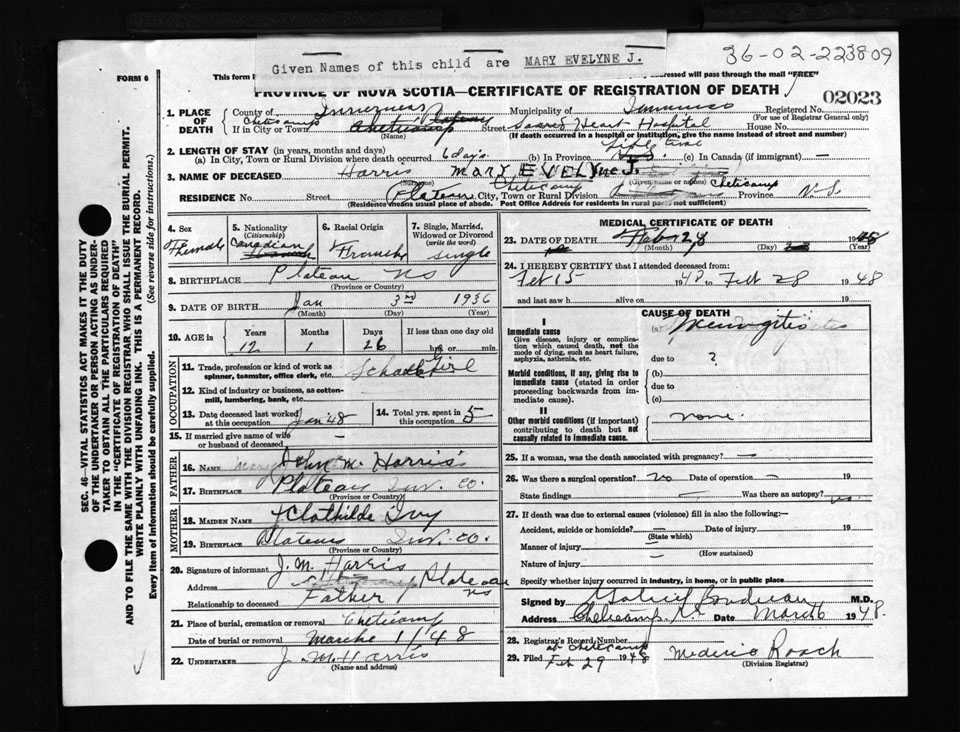 36-02-223809
Given Names of this child are MARY EVELYNE J.
FORM 6
This form
addressed will pass through the mail "FREE"
PROVINCE OF NOVA SCOTIA—CERTIFICATE OF REGISTRATION OF DEATH
02023
1. PLACE OF DEATH
County of Inverness
Municipality of Inverness
Registered No.
(For use of Registrar General only)
If in City or Town Cheticamp
(Name)
Street Sacred Heart Hospital
House No.
(If death occurred in a hospital or institution, give the name instead of street and number)
2. LENGTH OF STAY (in years, months and days)
(a) In City, Town or Rural Division where death occurred 6 days
(b) In Province Life time
(c) In Canada (if immigrant) —
3. NAME OF DECEASED Harris MARY EVELYne J.
(Surname)
(Given name or names)
RESIDENCE No. Street Plateau Cheticamp City, Town or Rural Division Cheticamp Province N.S.
(Residence means usual place of abode. Post Office Address for residents in rural parts not sufficient)
4. Sex
Female
5. Nationality
(Citizenship)
Canadian
6. Racial Origin
French
7. Single, Married, Widowed or Divorced
(write the word)
single
8. BIRTHPLACE Plateau NS
(Province or Country)
9. DATE OF BIRTH Jan 3rd 1936
(Month) (Day) (Year)
10. AGE in
Years Months Days If less than one day old
12 1 26 hrs. or min.
OCCUPATION
11. Trade, profession or kind of work as spinner, teamster, office clerk, etc. School Girl
12. Kind of industry or business, as cotton-mill, lumbering, bank, etc.
13. Date deceased last worked at this occupation Jan 48
14. Total yrs. spent in this occupation 5
15. If married give name of wife or husband of deceased —
FATHER
16. NAME John M. Harris
17. BIRTHPLACE Plateau Inv. Co.
(Province or Country)
MOTHER
18. MAIDEN NAME Clothilde Ivy
19. BIRTHPLACE Plateau Inv. Co.
(Province or Country)
20. Signature of informant J. M. Harris
Address Plateau NS
Relationship to deceased Father
21. Place of burial, cremation or removal Cheticamp
Date of burial or removal Marche 1/48
22. UNDERTAKER J. M. Harris
(Name and address)
MEDICAL CERTIFICATE OF DEATH
23. DATE OF DEATH Feb 28 1948
(Month) (Day) (Year)
24. I HEREBY CERTIFY that I attended deceased from:
Feb 15 1948 to Feb 28 1948
and last saw h alive on 19
CAUSE OF DEATH
I
Immediate cause
Give disease, injury or complication which caused death, not the mode of dying, such as heart failure, asphyxia, asthenia, etc.
(a) Meningitis
due to ?
Morbid conditions, if any, giving rise to immediate cause (stated in order proceeding backwards from immediate cause).
(b)
due to
(c)
II
Other morbid conditions (if important) contributing to death but not causally related to immediate cause.
none.
25. If a woman, was the death associated with pregnancy? —
26. Was there a surgical operation? No Date of operation — 19
State findings — Was there an autopsy? no
27. If death was due to external causes (violence) fill in also the following:—
Accident, suicide or homicide? — Date of injury 19
(State which)
Manner of injury —
(How sustained)
Nature of injury —
Specify whether injury occurred in industry, in home, or in public place
Signed by Gabriel Boudreau M.D.
Address Cheticamp, N.S. Date March 6 1948.
28. Registrar's Record Number
at Cheticamp
29. Filed Feb 29 1948 Mederic Roach
(Division Registrar)
SEC. 46—VITAL STATISTICS ACT MAKES IT THE DUTY OF THE UNDERTAKER OR PERSON ACTING AS UNDERTAKER TO OBTAIN ALL THE PARTICULARS REQUIRED IN THE "CERTIFICATE OF REGISTRATION OF DEATH" AND TO FILE THE SAME WITH THE DIVISION REGISTRAR, WHO SHALL ISSUE THE BURIAL PERMIT.
WRITE PLAINLY WITH UNFADING INK. THIS IS A PERMANENT RECORD.
Every item of information should be carefully supplied. (See reverse side for instructions.)